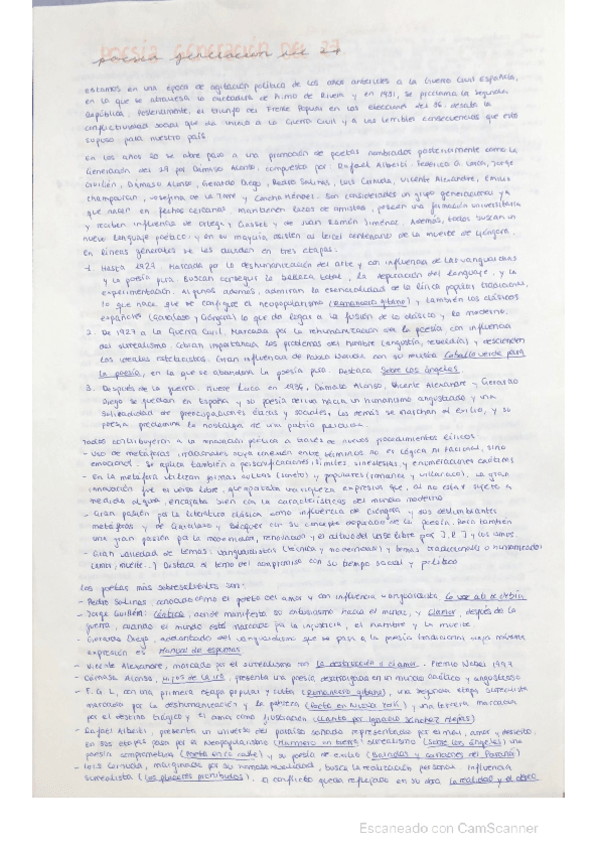 poesía generación del 27
Estamos en una época de agitación política de los años anteriores a la Guerra Civil Española,
en lo que se atraviesa la dictadura de Primo de Rivera y en 1931, se proclama la Segunda
República. Posteriormente, el triunfo del Frente Popular en las elecciones del 36 desata la
conflictividad social que da inicio a la Guerra Civil y a las terribles consecuencias que esto
supuso para nuestro país
En los años 20 se abre paso a una promoción de poetas nombrados posteriormente como la
Generación del 27 por Dámaso Alonso, compuesto por: Rafael Alberti, Federico G. Lorca, Jorge
Guillén, Dámaso Alonso, Gerardo Diego, Pedro Salinas, Luis Cernuda, Vicente Aleixandre, Emilio
Champourcin, Josefina de la Torre y Concha Méndez. Son considerados un grupo generacional ya
que nacen en fechas cercanas, mantienen lazos de amistad, poseen una formación universitaria
y reciben influencia de Ortega y Gasset y de Juan Ramón Jiménez. Además, todos buscan un
nuevo lenguaje poético y en su mayoría asisten al tercer centenario de la muerte de Góngora.
En líneas generales se les dividen en tres etapas:
1. Hasta 1927. Marcada por la deshumanización del arte y con influencia de las vanguardias
y la poesía pura. Buscan conseguir la belleza total, la depuración del lenguaje y la
experimentación. Algunos además, admiran la esencialidad de la lírica popular tradicional,
lo que hace que se configure el neopopularismo (Romancero gitano) y también los clásicos
españoles (Garcilaso y Góngora) lo que da lugar a la fusión de lo clásico y lo moderno.
2. De 1927 a la Guerra Civil. Marcada por la rehumanización de la poesía con influencia
del surrealismo. Cobran importancia los problemas del hombre (angustia, rebeldía) y descienden
los ideales esteticistas. Gran influencia de Pablo Neruda con su revista Caballo verde para
la poesía, en la que se abandona la poesía pura. Destaca Sobre los ángeles.
3. Después de la guerra. Muere Lorca en 1936, Dámaso Alonso, Vicente Aleixandre y Gerardo
Diego se quedan en España y su poesía deriva hacia un humanismo angustiado y una
solidaridad de preocupaciones éticas y sociales. Los demás se marchan al exilio, y su
poesía predomina la nostalgia de una patria perdida.
Todos contribuyeron a la renovación poética a través de nuevos procedimientos líricos:
- Uso de metáforas irracionales cuya conexión entre términos no es lógica ni racional, sino
emocional. Se aplica también a personificaciones, símiles, sinestesias, y enumeraciones caóticas
- En la métrica utilizan formas cultas (soneto) y populares (romance y villancico). La gran
innovación fue el verso libre, que aportaba una riqueza expresiva que, al no estar sujeto a
medida alguna, encajaba bien con las características del mundo moderno
- Gran pasión por la literatura clásica como influencia de Góngora y sus deslumbrantes
metáforas y de Garcilaso y Bécquer con su concepto depurado de la poesía. Hacia también
una gran pasión por la modernidad, renovando y el cultivo del verso libre por J.R.J y los ismos.
- Gran variedad de temas: vanguardistas (técnica y modernidad) y temas tradicionales o humanizados
(amor, muerte...) Destaca el tema del compromiso con su tiempo social y político
Los poetas más sobresalientes son:
- Pedro Salinas, conocido como el poeta del amor y con influencia vanguardista. La voz a ti debida
- Jorge Guillén: Cántico, donde manifiesta su entusiasmo hacia el mundo, y Clamor, después de la
guerra, cuando el mundo está marcado por la injusticia, el hambre y la muerte
- Gerardo Diego, adelantado del vanguardismo que se pasa a la poesía tradicional cuya máxima
expresión es Manual de espumas
- Vicente Aleixandre, marcado por el surrealismo en La destrucción o el amor. Premio Nobel 1977
- Dámaso Alonso, Hijos de la ira, presenta una poesía desarraigada en un mundo caótico y angustioso
- F.G.L, con una primera etapa popular y culta (Romancero gitano), una segunda etapa surrealista
marcada por la deshumanización y la pobreza (Poeta en Nueva York) y una tercera marcada
por el destino trágico y el amor como frustración (Llanto por Ignacio Sánchez Mejías)
- Rafael Alberti, presenta un universo del paraíso soñado representado por el mar, amor y destierro.
en sus etapas pasa por el neopopularismo (Marinero en tierra) surrealismo (Sobre los ángeles) una
poesía comprometida (Poeta en la calle) y su poesía de exilio (Baladas y canciones del Paraná)
- Luis Cernuda, marginado por su homosexualidad, busca la realización personal. Influencia
surrealista (Los placeres prohibidos). El conflicto queda reflejado en su obra La realidad y el deseo
Escaneado con CamScanner